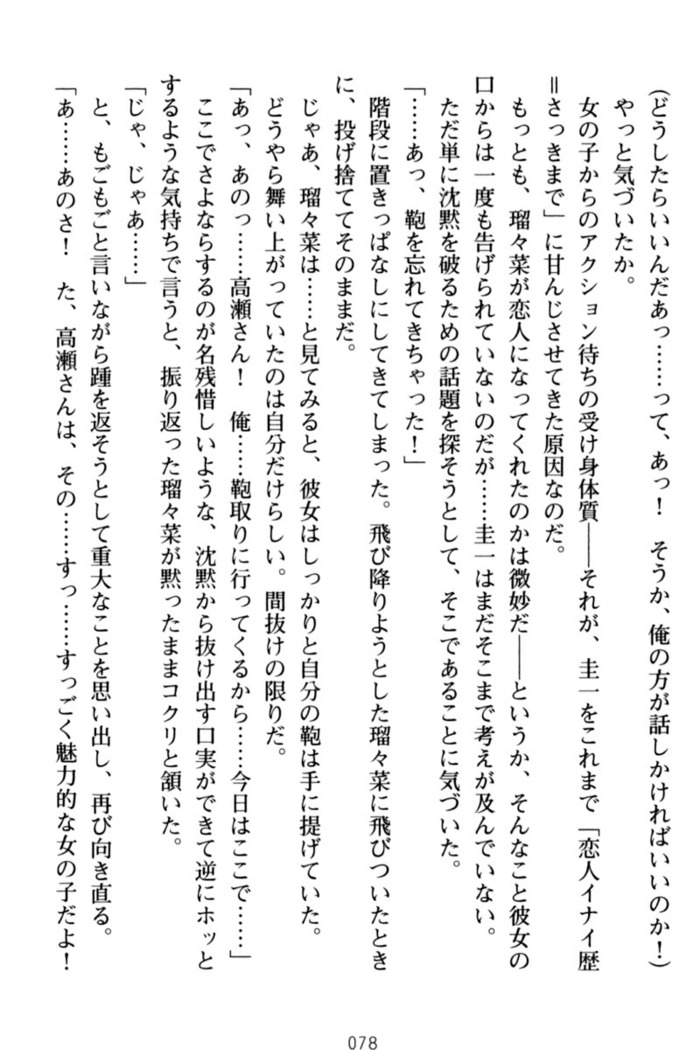 (どうしたらいいんだあっ……って、あっ！　そうか、俺の方が話しかければいいのか！)
やっと気づいたか。
女の子からのアクション待ちの受け身体質――それが、圭一をこれまで「恋人イナイ歴
＝さっきまで」に甘んじさせてきた原因なのだ。
もっとも、瑠々菜が恋人になってくれたのかは微妙だ――というか、そんなこと彼女の
口からは一度も告げられていないのだが……圭一はまだそこまで考えが及んでいない。
ただ単に沈黙を破るための話題を探そうとして、そこであることに気づいた。
「……あっ、鞄を忘れてきちゃった！」
階段に置きっぱなしにしてきてしまった。飛び降りようとした瑠々菜に飛びついたとき
に、投げ捨ててそのままだ。
じゃあ、瑠々菜は……と見てみると、彼女はしっかりと自分の鞄は手に提げていた。
どうやら舞い上がっていたのは自分だけらしい。間抜けの限りだ。
「あっ、あのっ……高瀬さん！　俺……鞄取りに行ってくるから……今日はここで……」
ここでさよならするのが名残惜しいような、沈黙から抜け出す口実ができて逆にホッと
するような気持ちで言うと、振り返った瑠々菜が黙ったままコクリと頷いた。
「じゃ、じゃあ……」
と、もごもごと言いながら踵を返そうとして重大なことを思い出し、再び向き直る。
「あ……あのさ！　た、高瀬さんは、その……すっ……すっごく魅力的な女の子だよ！
078